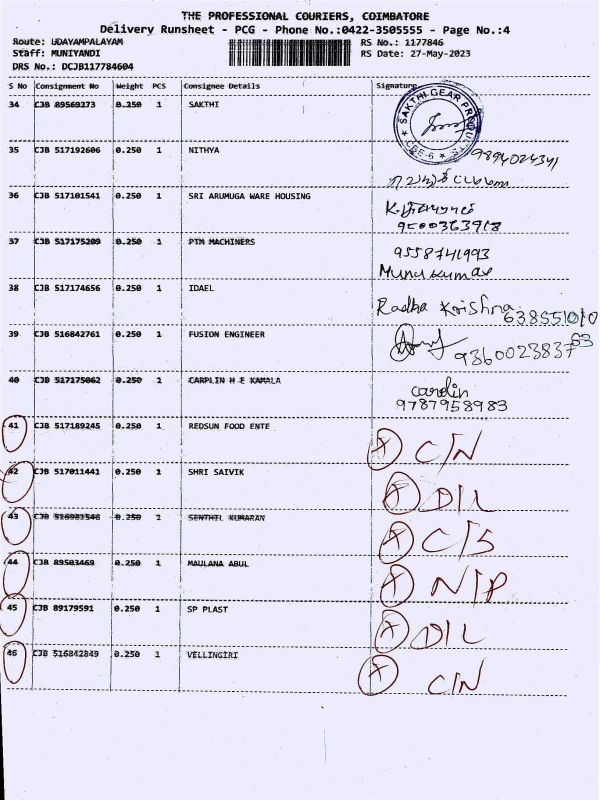 THE PROFESSIONAL COURIERS, COIMBATORE
Delivery Runsheet - PCG - Phone No.:0422-3505555 - Page No.:4
Route: UDAYAMPALAYAM RS No.: 1177846
Staff: MUNIYANDI RS Date: 27-May-2023
DRS No.: DCJB117784604
S No Consignment No Weight PCS Consignee Details Signature
34 CJB 89569273 0.250 1 SAKTHI
SAKTHI GEAR CBE-6
35 CJB 517192606 0.250 1 NITHYA 9894024341
36 CJB 517101541 0.250 1 SRI ARUMUGA WARE HOUSING
9600363918
37 CJB 517175209 0.250 1 PTM MACHINERS 9558741993
Munu kumar
38 CJB 517174656 0.250 1 IDAEL Radha Krishna
638551010
63
39 CJB 516842761 0.250 1 FUSION ENGINEER 9360023837
40 CJB 517175062 0.250 1 CARPLIN H E KAMALA carolin
9787958983
41 CJB 517189245 0.250 1 REDSUN FOOD ENTE X C/N
42 CJB 517011441 0.250 1 SHRI SAIVIK X D/L
43 CJB 516981546 0.250 1 SENTHIL KUMARAN X C/S
44 CJB 89503469 0.250 1 MAULANA ABUL X N/P
45 CJB 89179591 0.250 1 SP PLAST X D/L
46 CJB 516842849 0.250 1 VELLINGIRI X C/N